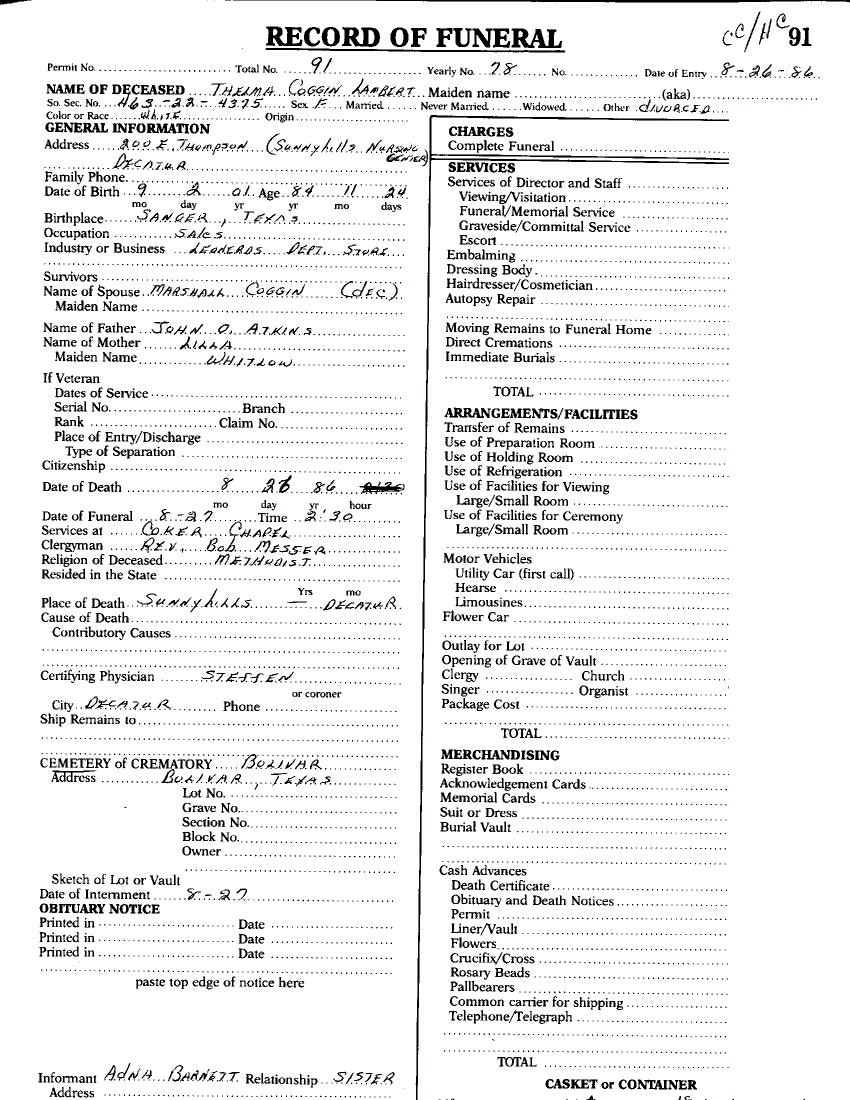 RECORD OF FUNERAL
CC/HC 91
Permit No. Total No. 91 Yearly No. 78 No. Date of Entry 8-26-86
NAME OF DECEASED THELMA COGGIN LAMBERT Maiden name (aka)
So. Sec. No. 463-22-4375 Sex F Married Never Married Widowed Other divorced
Color or Race WHITE Origin
GENERAL INFORMATION
Address 200 E. Thompson (Sunnyhills Nursing Center)
DECATUR
Family Phone
Date of Birth 9 2 01 Age 84 11 24
mo day yr yr mo days
Birthplace SANGER, TEXAS
Occupation SALES
Industry or Business LEONERDS DEPT. STORE
Survivors
Name of Spouse MARSHALL COGGIN (dec)
Maiden Name
Name of Father JOHN O. ATKINS
Name of Mother LILLA
Maiden Name WHITLOW
If Veteran
Dates of Service
Serial No. Branch
Rank Claim No.
Place of Entry/Discharge
Type of Separation
Citizenship
Date of Death 8 26 86
mo day yr hour
Date of Funeral 8-27 Time 2:30
Services at COKER CHAPEL
Clergyman REV. Bob MESSER
Religion of Deceased METHODIST
Resided in the State
Yrs mo
Place of Death SUNNYHILLS — DECATUR
Cause of Death
Contributory Causes
Certifying Physician
or coroner
City DECATUR Phone
Ship Remains to
CEMETERY of CREMATORY BOLIVAR
Address BOLIVAR, TEXAS
Lot No.
Grave No.
Section No.
Block No.
Owner
Sketch of Lot or Vault
Date of Internment 8-27
OBITUARY NOTICE
Printed in Date
Printed in Date
Printed in Date
paste top edge of notice here
Informant AdNA BARNETT Relationship SISTER
Address
CHARGES
Complete Funeral
SERVICES
Services of Director and Staff
Viewing/Visitation
Funeral/Memorial Service
Graveside/Committal Service
Escort
Embalming
Dressing Body
Hairdresser/Cosmetician
Autopsy Repair
Moving Remains to Funeral Home
Direct Cremations
Immediate Burials
TOTAL
ARRANGEMENTS/FACILITIES
Transfer of Remains
Use of Preparation Room
Use of Holding Room
Use of Refrigeration
Use of Facilities for Viewing
Large/Small Room
Use of Facilities for Ceremony
Large/Small Room
Motor Vehicles
Utility Car (first call)
Hearse
Limousines
Flower Car
Outlay for Lot
Opening of Grave of Vault
Clergy Church
Singer Organist
Package Cost
TOTAL
MERCHANDISING
Register Book
Acknowledgement Cards
Memorial Cards
Suit or Dress
Burial Vault
Cash Advances
Death Certificate
Obituary and Death Notices
Permit
Liner/Vault
Flowers
Crucifix/Cross
Rosary Beads
Pallbearers
Common carrier for shipping
Telephone/Telegraph
TOTAL
CASKET or CONTAINER